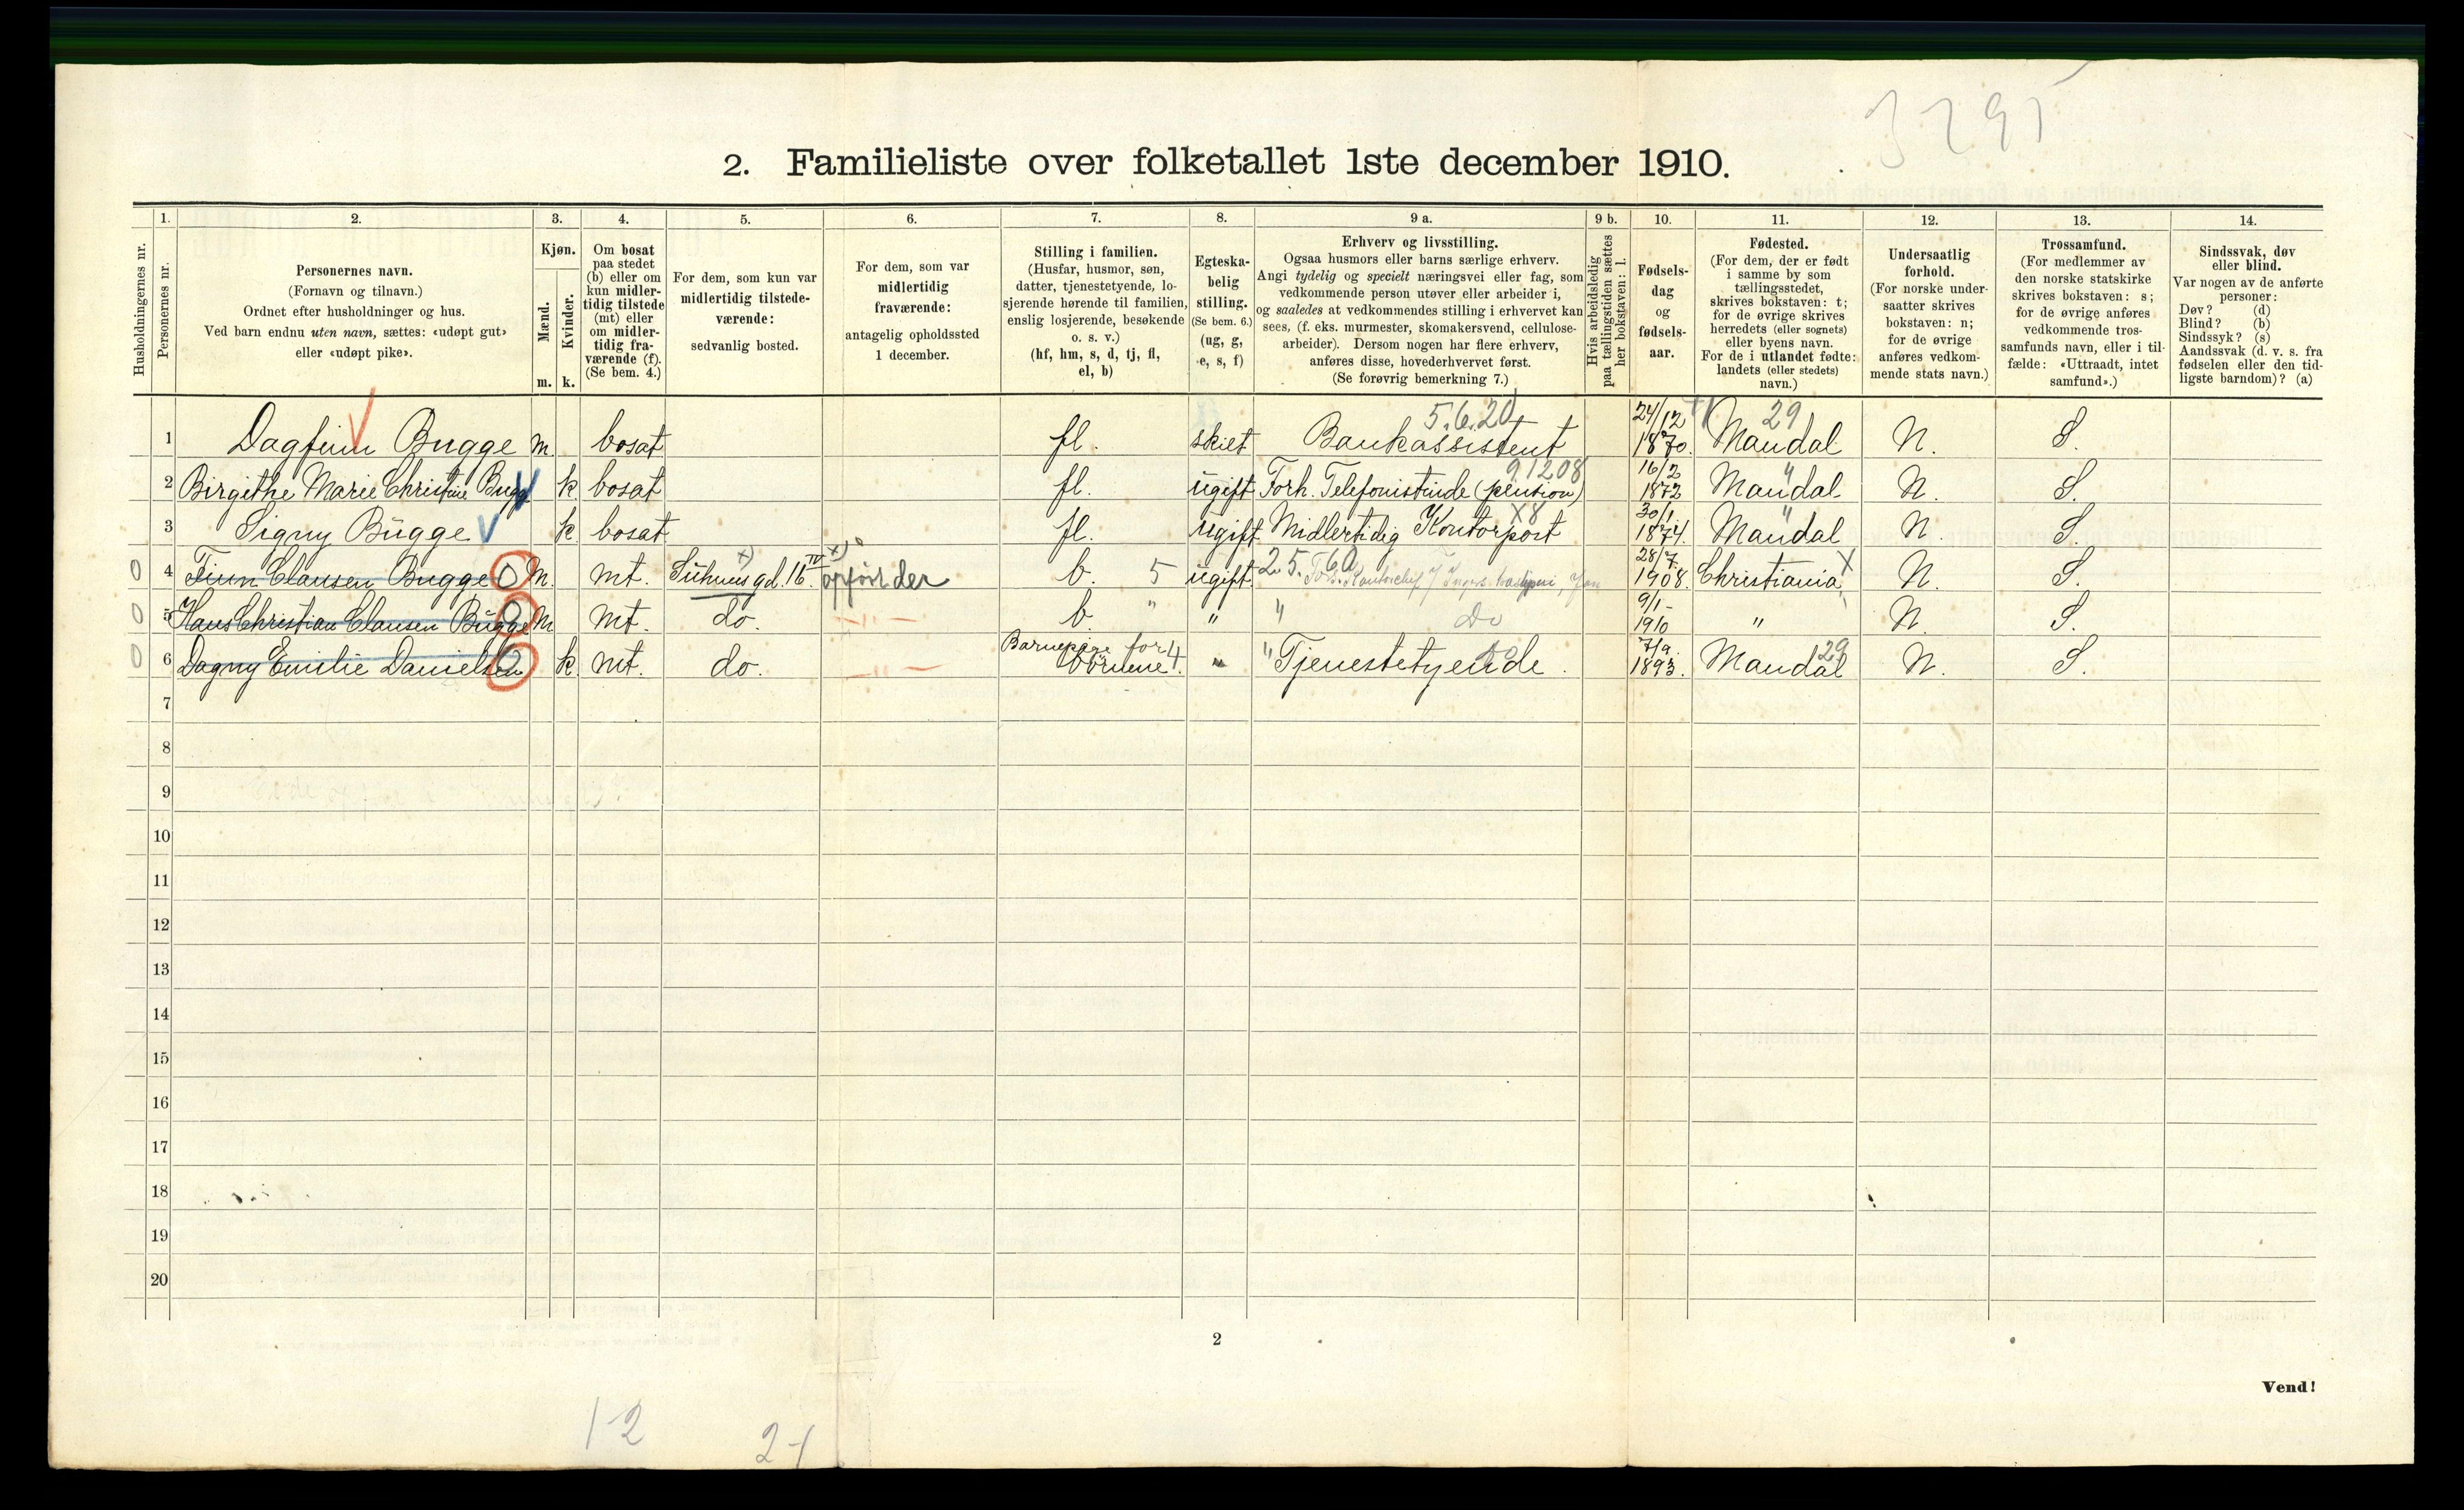 3295
2. Familieliste over folketallet 1ste december 1910.
Husholdningernes nr.
1.
Personernes nr.
2.
Personernes navn.
(Fornavn og tilnavn.)
Ordnet efter husholdninger og hus.
Ved barn endnu uten navn, sættes: «udøpt gut»
eller «udøpt pike».
3.
Kjøn.
Mænd.
m.
Kvinder.
k.
4.
Om bosat
paa stedet
(b) eller om
kun midler-
tidig tilstede
(mt) eller
om midler-
tidig fra-
værende (f).
(Se bem. 4.)
5.
For dem, som kun var
midlertidig tilstede-
værende:
sedvanlig bosted.
6.
For dem, som var
midlertidig
fraværende:
antagelig opholdssted
1 december.
7.
Stilling i familien.
(Husfar, husmor, søn,
datter, tjenestetyende, lo-
sjerende hørende til familien,
enslig losjerende, besøkende
o. s. v.)
(hf, hm, s, d, tj, fl,
el, b)
8.
Egteska-
belig
stilling.
(Se bem. 6.)
(ug, g,
e, s, f)
9 a.
Erhverv og livsstilling.
Ogsaa husmors eller barns særlige erhverv.
Angi tydelig og specielt næringsvei eller fag, som
vedkommende person utøver eller arbeider i,
og saaledes at vedkommendes stilling i erhvervet kan
sees, (f. eks. murmester, skomakersvend, cellulose-
arbeider). Dersom nogen har flere erhverv,
anføres disse, hovederhvervet først.
(Se forøvrig bemerkning 7.)
9 b.
Hvis arbeidsledig
paa tællingstiden sættes
her bokstaven: l.
10.
Fødsels-
dag
og
fødsels-
aar.
11.
Fødested.
(For dem, der er født
i samme by som
tællingsstedet,
skrives bokstaven: t;
for de øvrige skrives
herredets (eller sognets)
eller byens navn.
For de i utlandet fødte:
landets (eller stedets)
navn.)
12.
Undersaatlig
forhold.
(For norske under-
saatter skrives
bokstaven: n;
for de øvrige
anføres vedkom-
mende stats navn.)
13.
Trossamfund.
(For medlemmer av
den norske statskirke
skrives bokstaven: s;
for de øvrige anføres
vedkommende tros-
samfunds navn, eller i til-
fælde: «Uttraadt, intet
samfund».)
14.
Sindssvak, døv
eller blind.
Var nogen av de anførte
personer:
Døv? (d)
Blind? (b)
Sindssyk? (s)
Aandssvak (d. v. s. fra
fødselen eller den tid-
ligste barndom)? (a)
1 Dagfinn Bugge m. bosat fl. skilt Bankassistent 5.6.20 24/12 1870. Mandal 29 N. S.
2 Birgithe Marie Christine Bugge k bosat fl. ugift Forh. Telefonistinde (pension) 91208 16/2 1872 Mandal " N. S.
3 Signy Bugge k bosat fl. ugift Midlertidig Kontorpost X8 30/1 1874. Mandal " N. S.
0 4 Finn Clausen Bugge 0 m. mt. Suhmsgd. 16 IV x) x) opført der b. 5 ugift 25.60 28/7. 1908. Christiania X N. S.
0 5 Hans Christian Clausen Bugge 0 m mt. do. — " — b. " " " Do 9/1- 1910 " N. S.
0 6 Dagny Emilie Danielsen 0 k. mt. do. — " — Barnepige for börnene. 4 " " Tjenestetyende. 7/9. 1893. Mandal 29 N. S.
7
8
9
10
11
12
13
14
15
16
17
18
19
20
2
Vend!
1-2
2-1